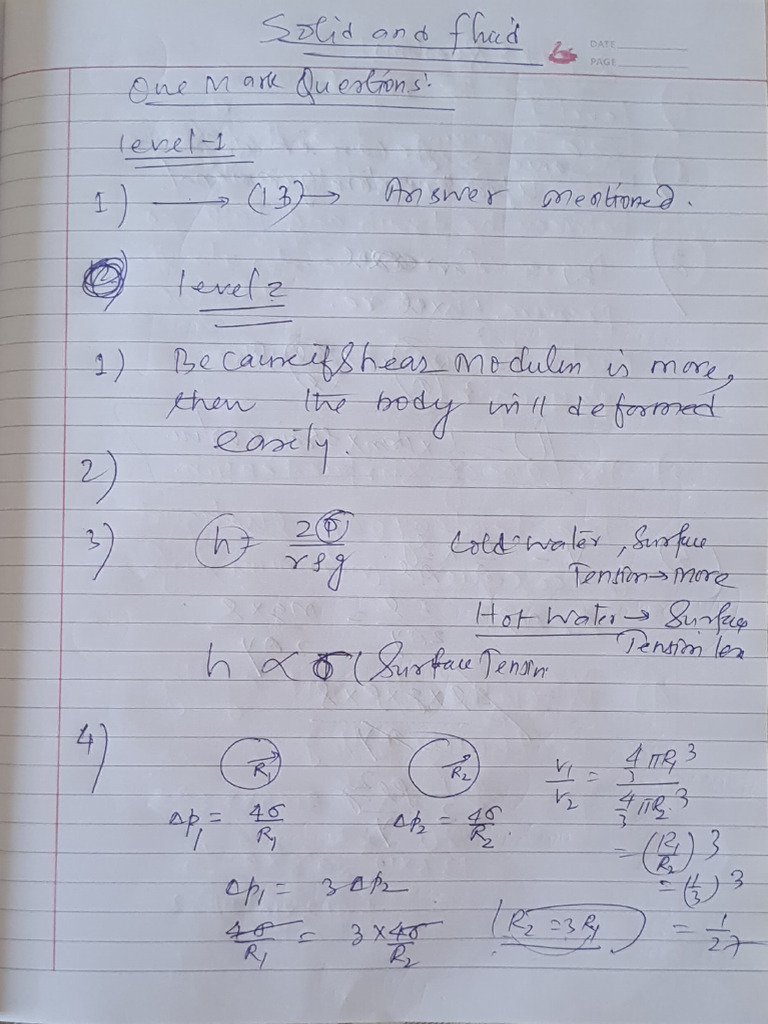 Solid and fluid
DATE
PAGE
One Mark Questions:
level-1
1) → (13) → Answer mentioned.
level 2
1) Because if Shear modulus is more,
then the body will deformed
easily.
2)
3) h = 2σ / rρg Cold water, Surface
Tension → more
Hot water → Surface
Tension less
h ∝ σ (Surface Tension
4) R1 R2 V1/V2 = 4/3 πR1^3 / 4/3 πR2^3
Δp1 = 4σ/R1 Δp2 = 4σ/R2
= (R1/R2)3
Δp1 = 3Δp2 = (1/3)3
4σ/R1 = 3 × 4σ/R2 (R2 = 3R1) = 1/27